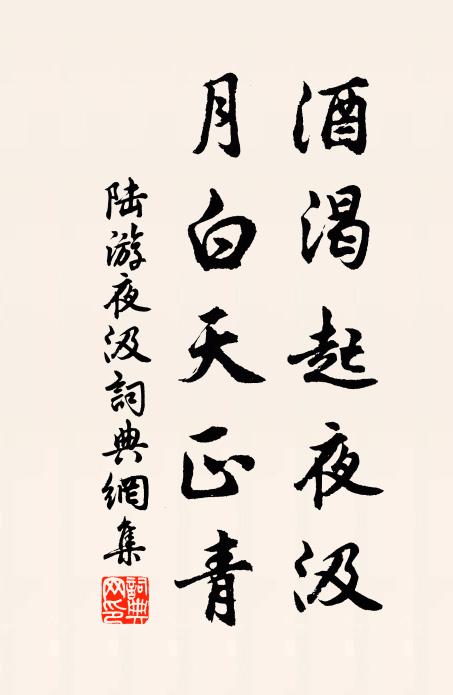 酒渴起夜汲
月白天正青
陆游夜汲詞典網集
詞典网印